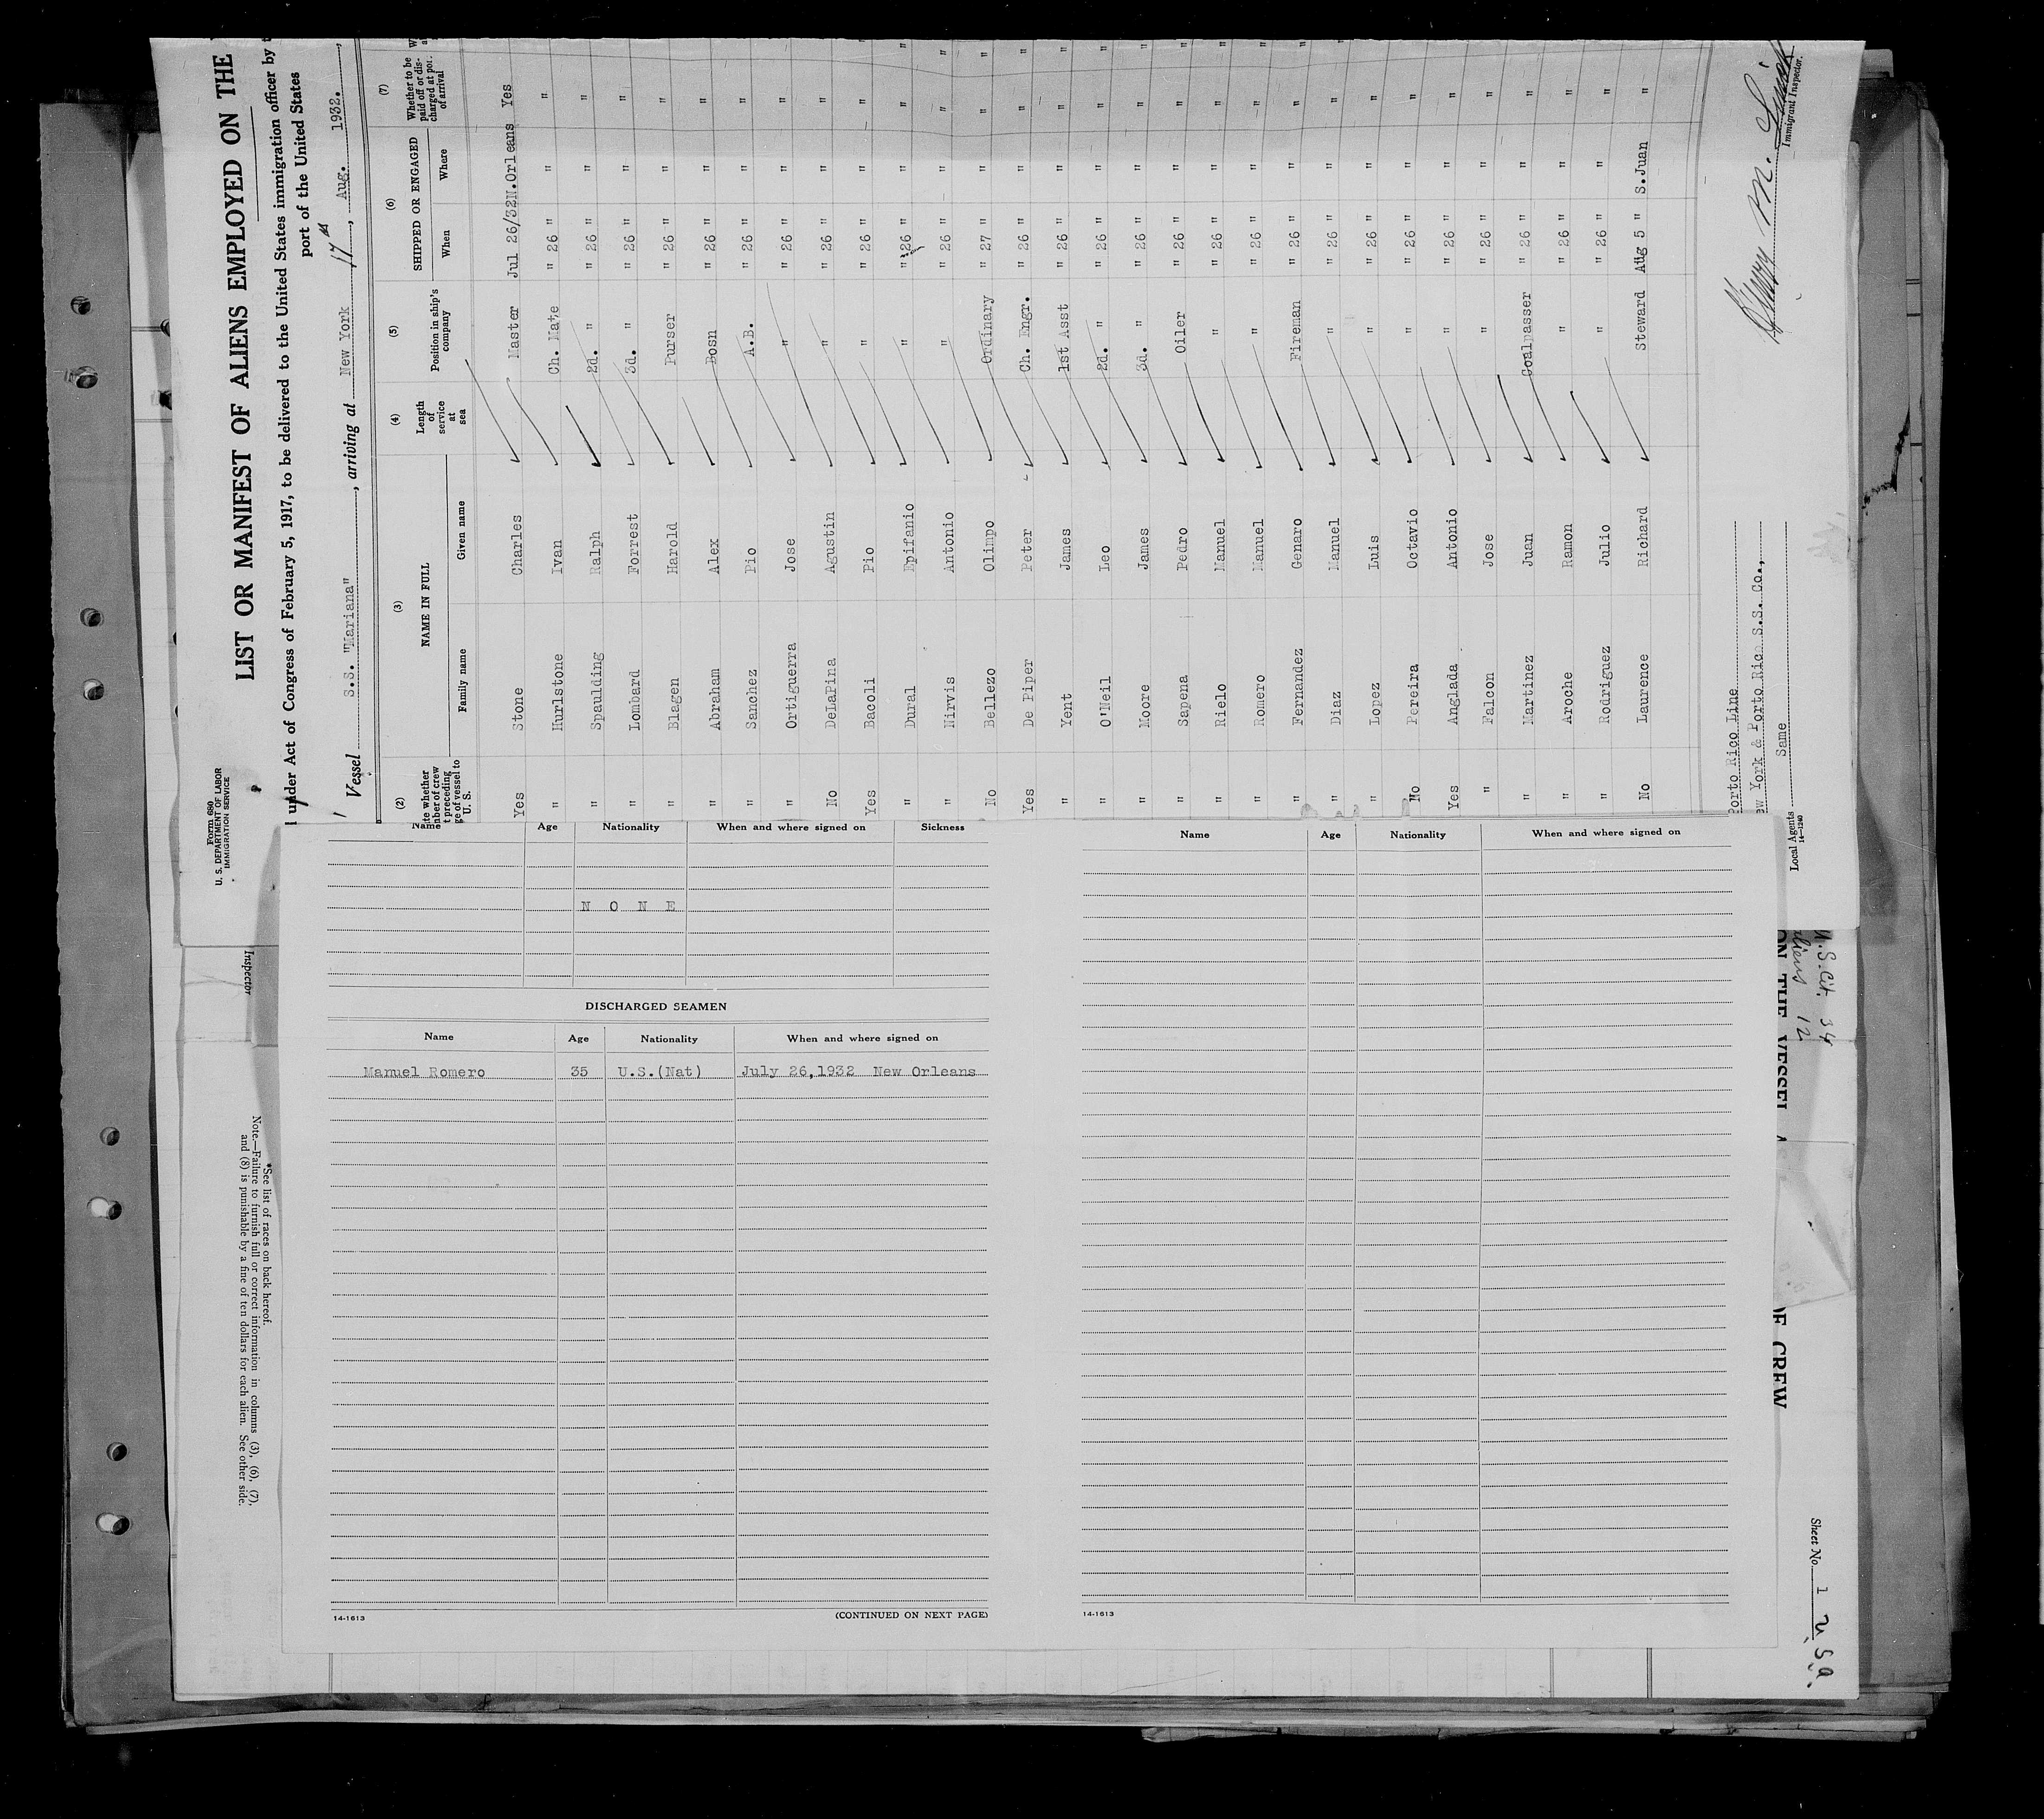 Form 680
U. S. DEPARTMENT OF LABOR
IMMIGRATION SERVICE
LIST OR MANIFEST OF ALIENS EMPLOYED ON THE
under Act of Congress of February 5, 1917, to be delivered to the United States immigration officer by
port of the United States
Vessel S.S. "Mariana", arriving at New York 17th, Aug. 1932.,
(2) (3) (4) (5) (6) (7)
whether
crew
preceding
of vessel to
U. S.
NAME IN FULL
Family name Given name
Length
of
service
at
sea
Position in ship's
company
SHIPPED OR ENGAGED
When Where
Whether to be
paid off or dis-
charged at port
of arrival
Yes Stone Charles Master Jul 26/32 N.Orleans Yes
" Hurlstone Ivan Ch. Mate " 26 " " "
" Spaulding Ralph 2d. " " 26 " " "
" Lombard Forrest 3d. " " 26 " " "
" Blagen Harold Purser " 26 " " "
" Abraham Alex Bosn " 26 " " "
" Sanchez Pio A.B. " 26 " " "
" Ortiguerra Jose " " 26 " " "
No DeLaPina Agustin " " 26 " " "
Yes Bacoli Pio " " 26 " " "
" Dural Epifanio " " 26 " " "
" Nirvis Antonio " " 26 " " "
No Bellezo Olimpo Ordinary " 27 " " "
Yes De Piper Peter Ch. Engr. " 26 " " "
" Yent James 1st Asst " 26 " " "
" O'Neil Leo 2d. " " 26 " " "
" Moore James 3d. " " 26 " " "
" Sapena Pedro Oiler " 26 " " "
" Rielo Manuel " " 26 " " "
" Romero Manuel " " 26 " " "
" Fernandez Genaro Fireman " 26 " " "
" Diaz Manuel " " 26 " " "
" Lopez Luis " " 26 " " "
No Pereira Octavio " " 26 " " "
Yes Anglada Antonio " " 26 " " "
" Falcon Jose " " 26 " " "
" Martinez Juan Coalpasser " 26 " " "
" Aroche Ramon " " 26 " " "
" Rodriguez Julio " " 26 " " "
No Laurence Richard Steward Aug 5 " S.Juan "
Porto Rico Line
ew York & Porto Rico S.S. Co.,
Same
Local Agents
14-1240
Immigrant Inspector.
Name Age Nationality When and where signed on Sickness
N O N E
DISCHARGED SEAMEN
Name Age Nationality When and where signed on
Manuel Romero 35 U.S.(Nat) July 26,1932 New Orleans
14-1613 (CONTINUED ON NEXT PAGE)
Name Age Nationality When and where signed on
14-1613
Inspector
*See list of races on back hereof.
Note.—Failure to furnish full or correct information in columns (3), (6), (7),
and (8) is punishable by a fine of ten dollars for each alien. See other side.
U.S. Cit. 34
aliens 12
ON THE VESSEL
OF CREW
Sheet No. 1 U.S.A.